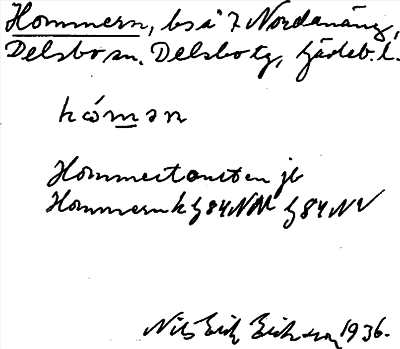 Hommern, bs å 7 Nordanäng,
Delsbo sn. Delsbo tg, Gävleb. l.
håmən
Hommertomten jb
Hommern k G84NM G84NV
Nils Erik Erikson 1936.